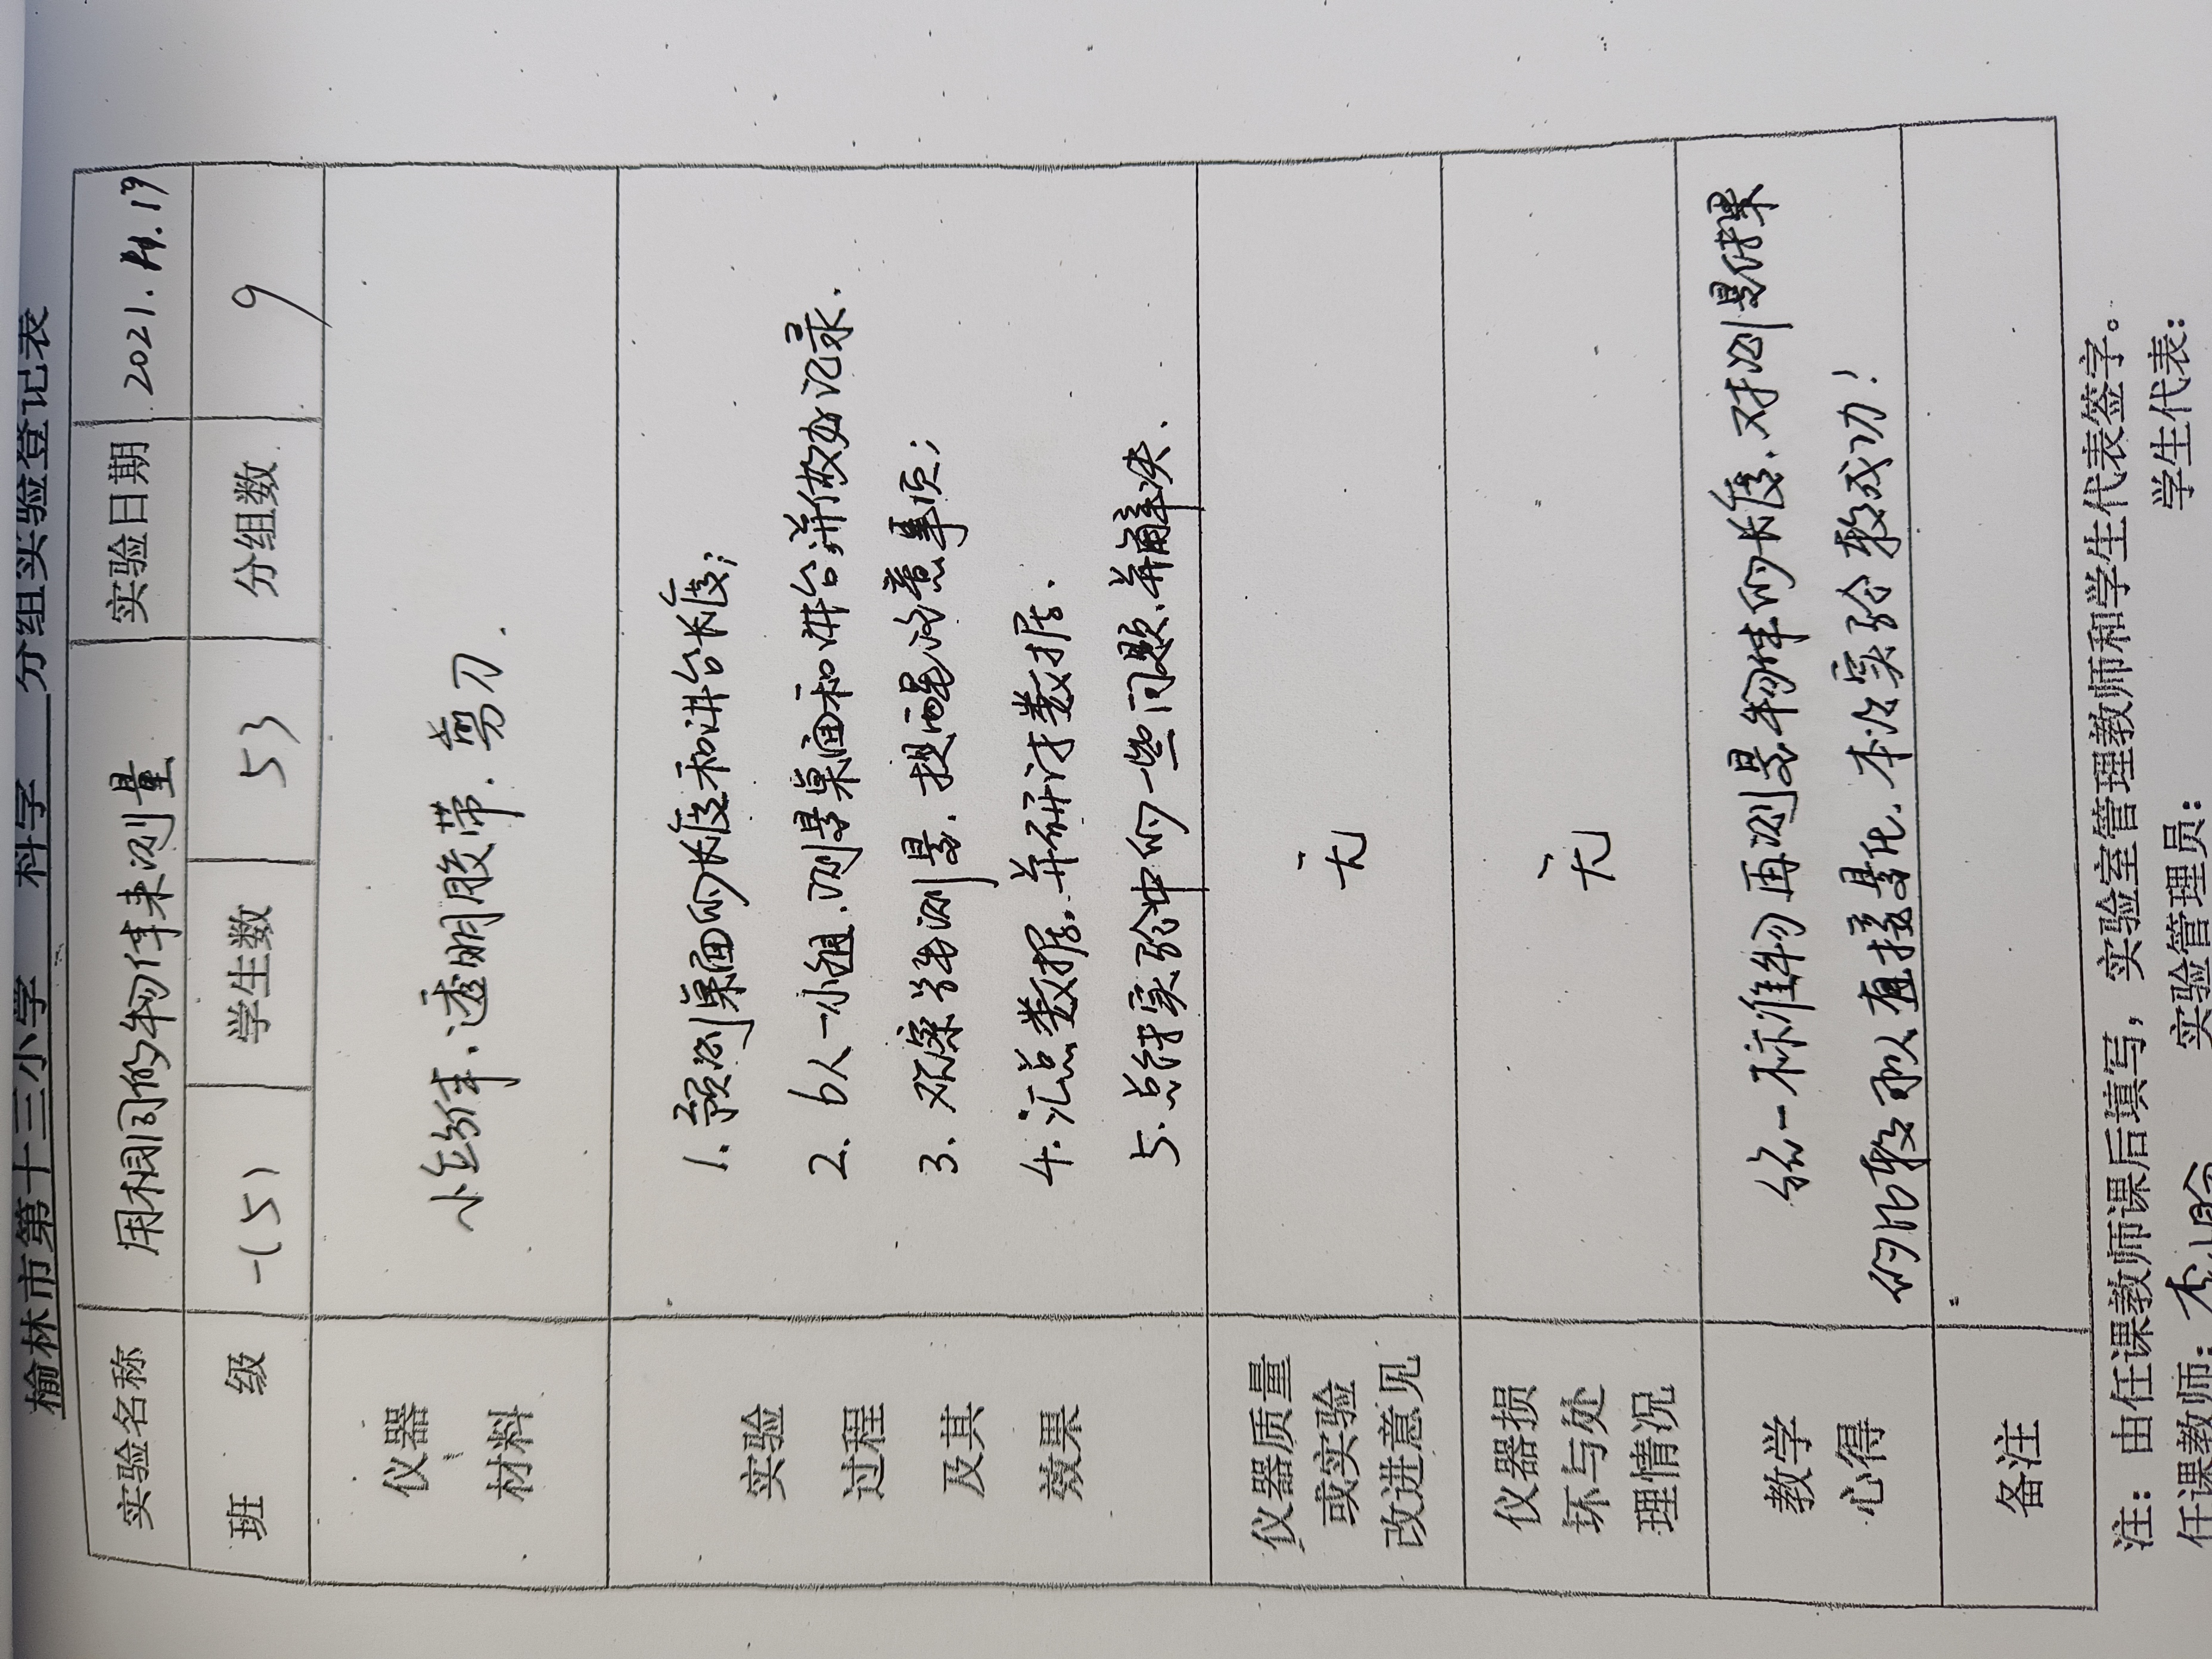 榆林市第十三小学 科学 分组实验登记表
实验名称 用相同的物体来测量 实验日期 2021.11.19
班 级 一(5) 学生数 53 分组数 9
仪器
材料
小立方体.透明胶带.剪刀.
实验
过程
及其
效果
1.预测桌面的长度和讲台长度;
2.6人一小组.测量桌面和讲台并做好记录.
3.观察学生测量.提醒注意事项;
4.汇总数据.并研讨数据.
5.总结实验中的一些问题.并解决.
仪器质量
或实验
改进意见
无
仪器损
坏与处
理情况
无
教学
心得
统一标准物再测量物体的长度.对测量结果
的比较可以直接量化.本次实验较成功!
备注
注:由任课教师课后填写,实验室管理教师和学生代表签字。
任课教师: 实验管理员: 学生代表: